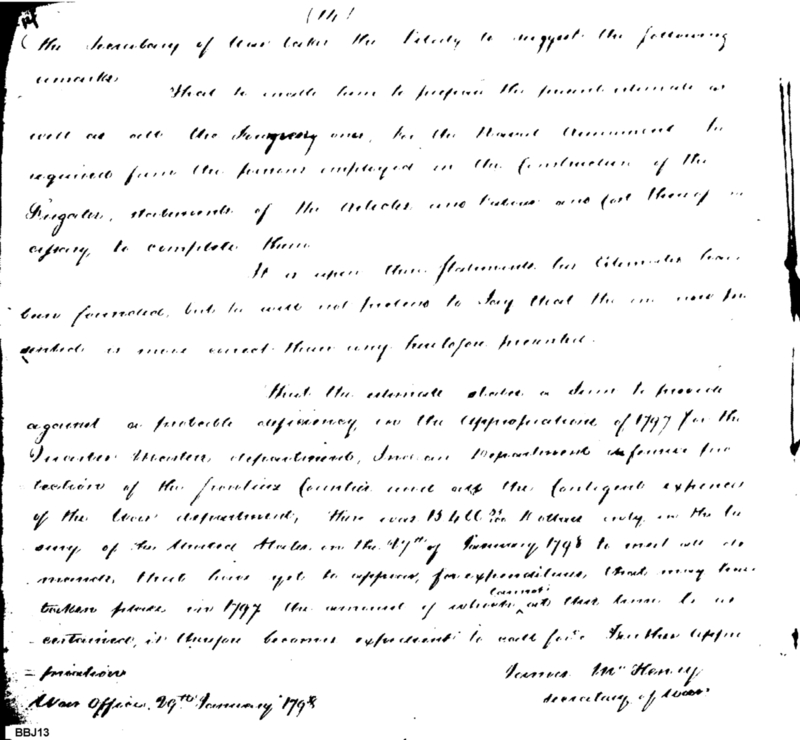 (14)
The Secretary of War takes the liberty to suggest the following
remarks
That to enable him to prepare the present estimate as
well as all the foregoing ones, for the Naval Armament he
required from the persons employed in the Construction of the
Frigates, statements of the articles and labour and cost thereof ne
cessary, to complete them
It is upon these Statements his Estimates have
been founded, but he will not pretend to say that the one now pre
sented is more correct than any heretofore presented.
That the estimate states a sum to provide
against a probable deficiency in the appropriations of 1797 for the
Quarter Masters department, Indian Department defensive pro
tection of the frontier Counties and all the Contigent expences
of the War department, there was Dollars only in the trea
sury of the United States, on the 27th of January 1798 to meet all de
mands, that have yet to appear, for expenditures, that may have
taken place in 1797 the amount of which cannot at this time be as
certained, it therefore becomes expedient to call for a further appro
=priation
James McHenry
War Office, 29th January 1798
Secretary of War
BBJ13